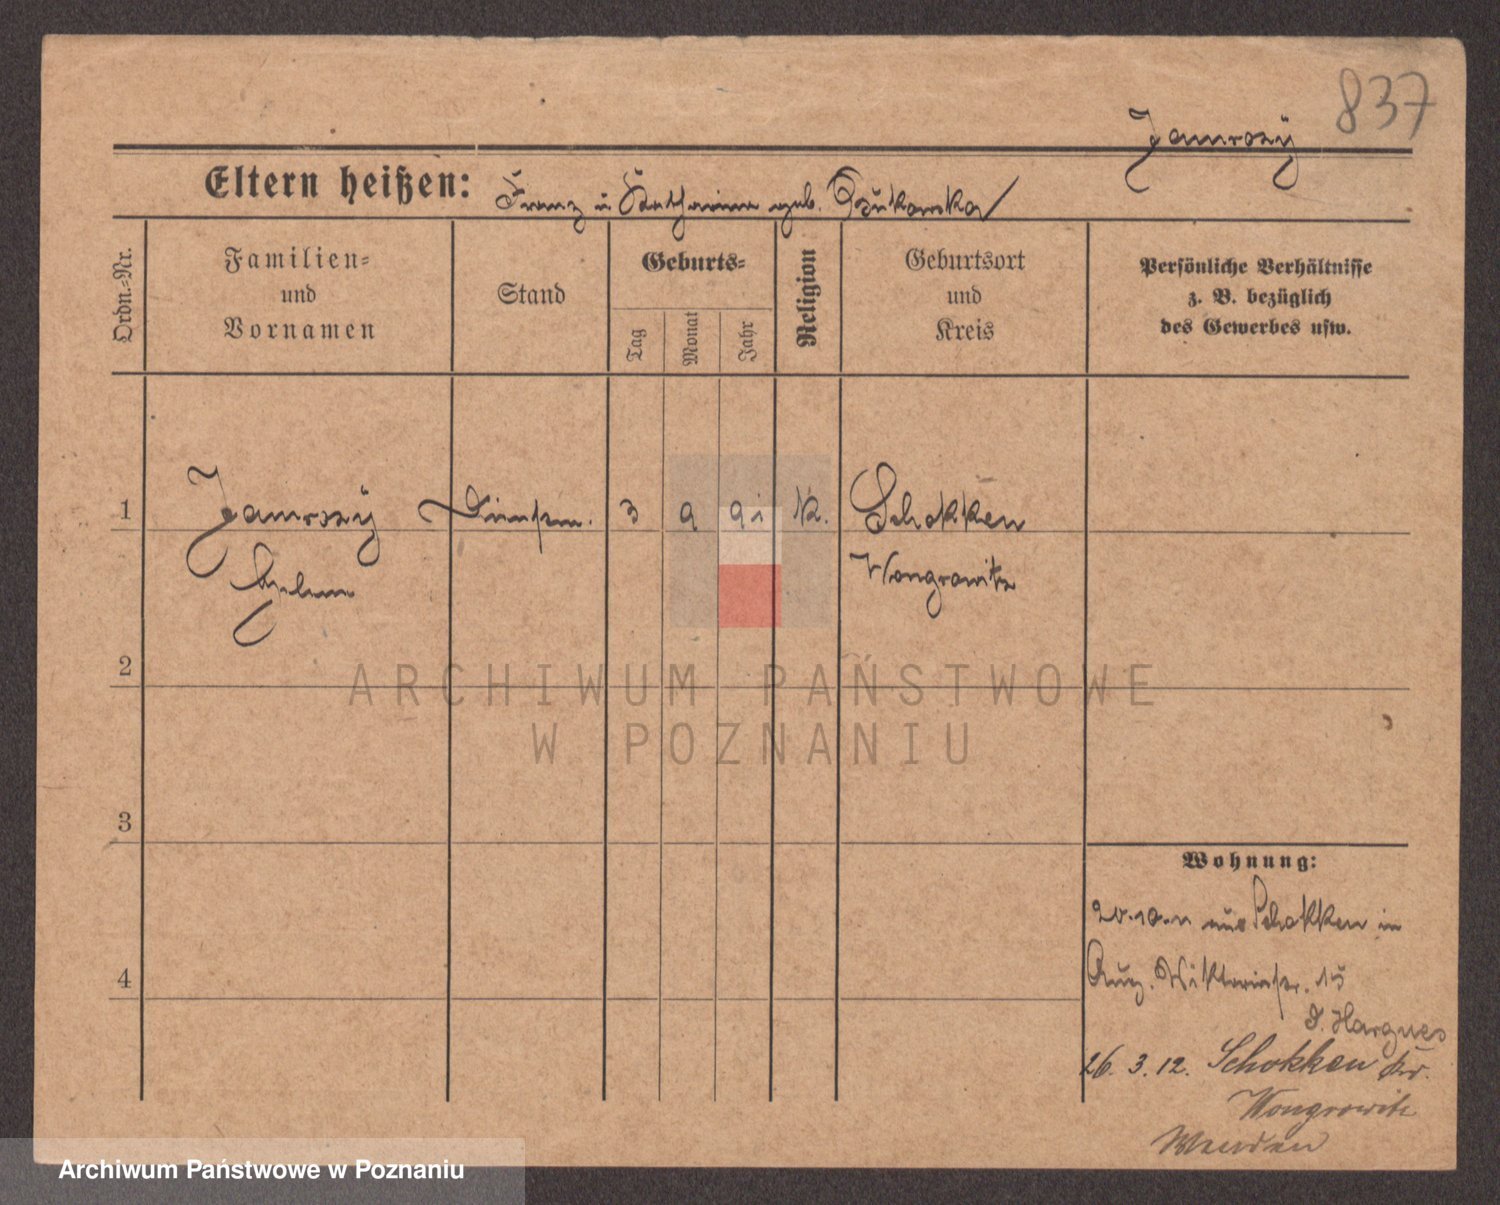 837
Jamrozÿ
Eltern heißen: Franz u Katharina geb. Bzukowska
Ordn.-Nr.
Familien-
und
Vornamen
Stand
Geburts-
Tag
Monat
Jahr
Religion
Geburtsort
und
Kreis
Persönliche Verhältnisse
z. B. bezüglich
des Gewerbes usw.
1 Jamrozÿ 3 9 91 K. Schokken
Wongrowitz
2
3
4
Wohnung:
20.10.11 aus Schokken in
Aug. Viktoriastr. 15
26. 3. 12. Schokken Kr.
Wongrowitz
ARCHIWUM PAŃSTWOWE
W POZNANIU
Archiwum Państwowe w Poznaniu